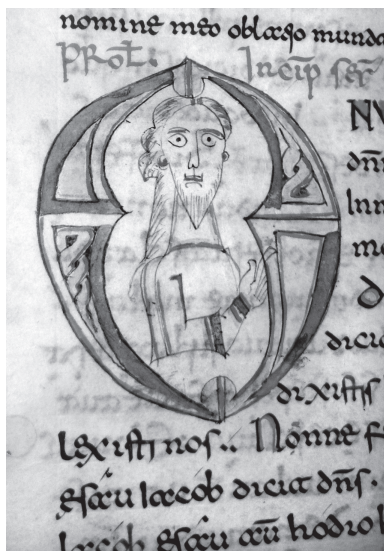 nomine meo oblatio munda
PROT: Incip̄ ser̄
O NV
dñi
In m
m
d
dicit
dixistis
lexisti nos.. Nonne f
esau Iacob dicit dñs.
Iacob esau aū hodio